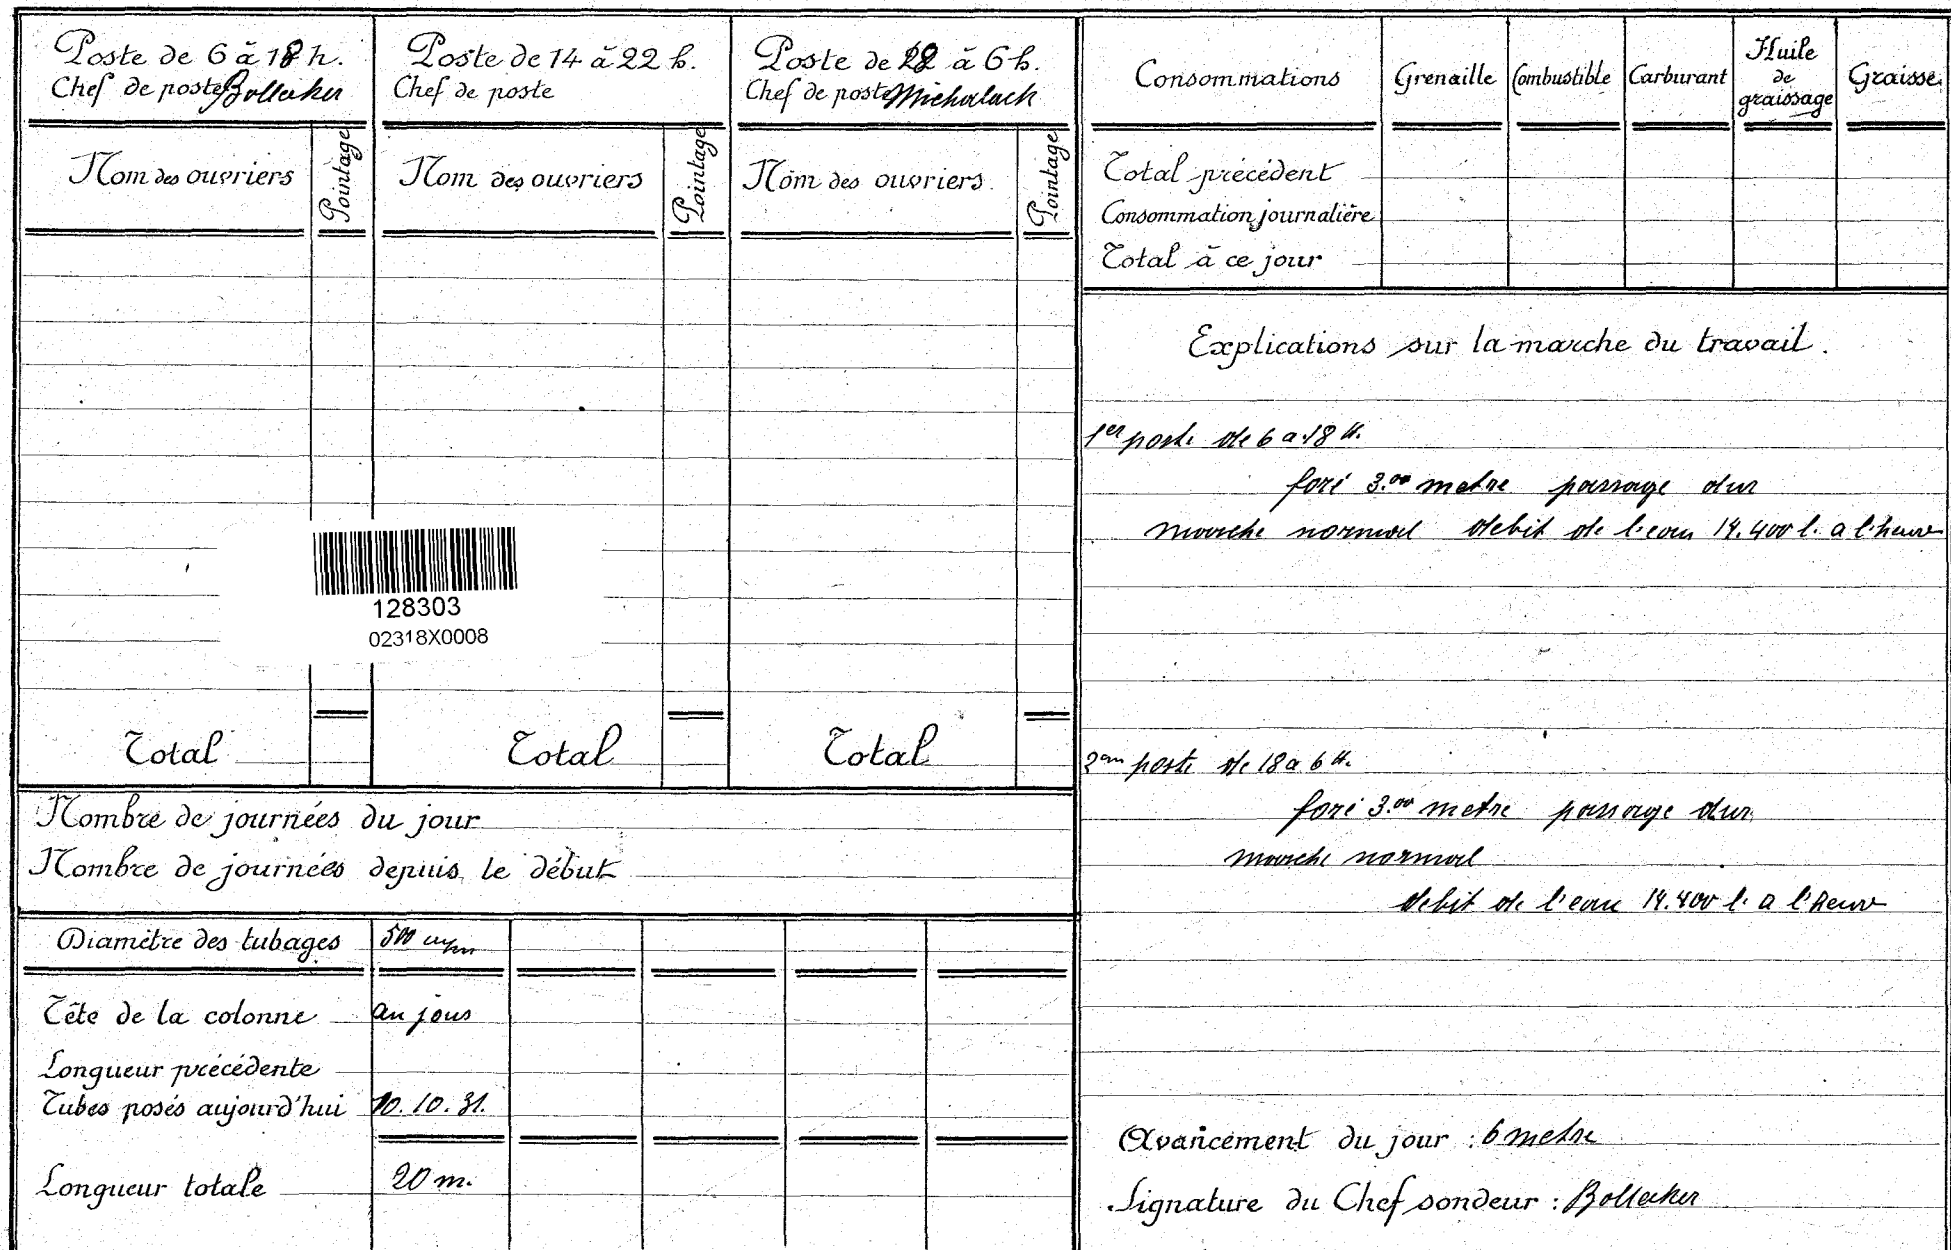 Poste de 6 à 18 h.
Chef de poste Bollecker
Nom des ouvriers
Pointage
Total
Poste de 14 à 22 h.
Chef de poste
Nom des ouvriers
Pointage
Total
Poste de 18 à 6 h.
Chef de poste Michalack
Nom des ouvriers
Pointage
Total
128303
02318X0008
Nombre de journées du jour
Nombre de journées depuis le début
Diamètre des tubages 500 m/m
Tête de la colonne au jous
Longueur précédente
Tubes posés aujourd'hui 10.10.31.
Longueur totale 20 m.
Consommations Grenaille Combustible Carburant Huile de graissage Graisse
Total précédent
Consommation journalière
Total à ce jour
Explications sur la marche du travail.
1er poste de 6 a 18 H.
foré 3.00 metre passage dur
marche normal debit de l'eau 14.400 l. a l'heure
2em poste de 18 a 6 H.
foré 3.00 metre passage dur
marche normal
debit de l'eau 14.400 l. a l'heure
Avancement du jour : 6 metre
Signature du Chef sondeur : Bollecker